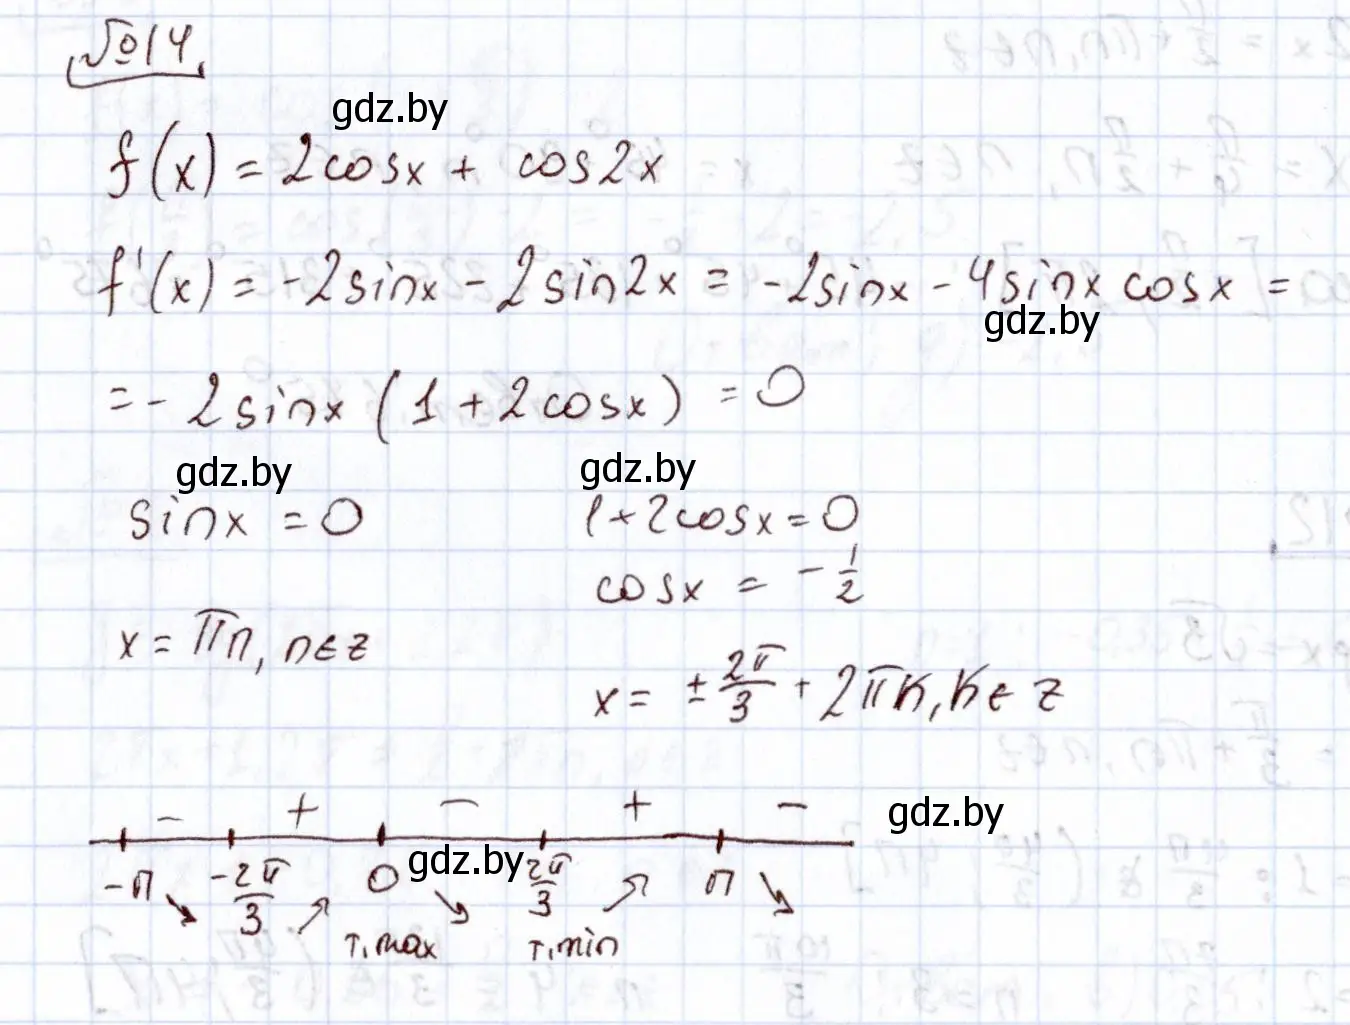 №14
gdz.by
f(x) = 2cosx + cos2x
f'(x) = -2sinx - 2sin2x = -2sinx - 4sinx cosx =
gdz.by
= - 2sinx (1 + 2cosx) = 0
gdz.by gdz.by
sinx = 0 1+2cosx = 0
cosx = - 1/2
x = πn, n∈z
x = ± 2π/3 + 2πk, k∈z
- + - + -
gdz.by
-π -2π/3 0 gdz.by 2π/3 π
т.max т.min